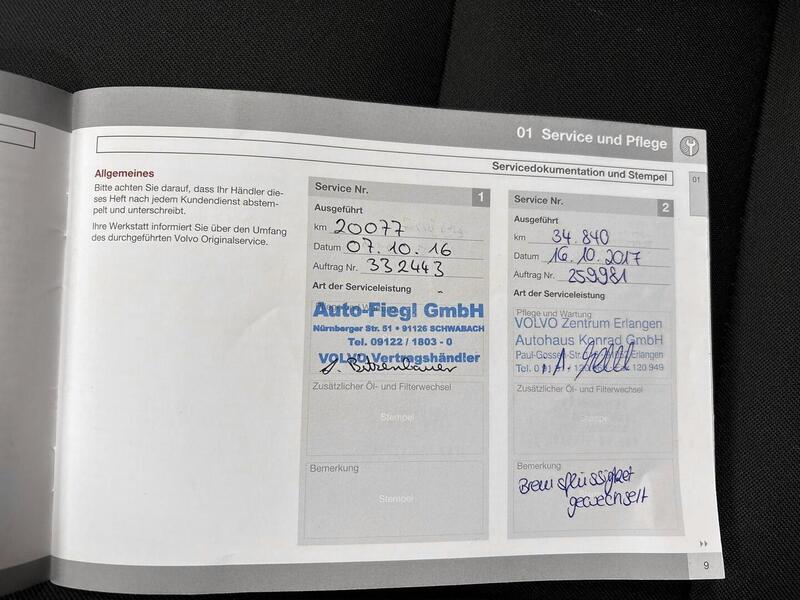 01 Service und Pflege
Servicedokumentation und Stempel
01
Allgemeines
Bitte achten Sie darauf, dass Ihr Händler die-
ses Heft nach jedem Kundendienst abstem-
pelt und unterschreibt.
Ihre Werkstatt informiert Sie über den Umfang
des durchgeführten Volvo Originalservice.
Service Nr. 1
Ausgeführt
km 20077
Datum 07.10.16
Auftrag Nr. 332443
Art der Serviceleistung
Pflege und Wartung
Auto-Fiegl GmbH
Nürnberger Str. 51 • 91126 SCHWABACH
Tel. 09122 / 1803 - 0
VOLVO Vertragshändler
Zusätzlicher Öl- und Filterwechsel
Stempel
Bemerkung
Stempel
Service Nr. 2
Ausgeführt
km 34.840
Datum 16.10.2017
Auftrag Nr. 259981
Art der Serviceleistung
Pflege und Wartung
VOLVO Zentrum Erlangen
Autohaus Konrad GmbH
Erlangen
Tel. 120 949
Zusätzlicher Öl- und Filterwechsel
Stempel
Bemerkung
Bremsflüssigkeit
gewechselt
9